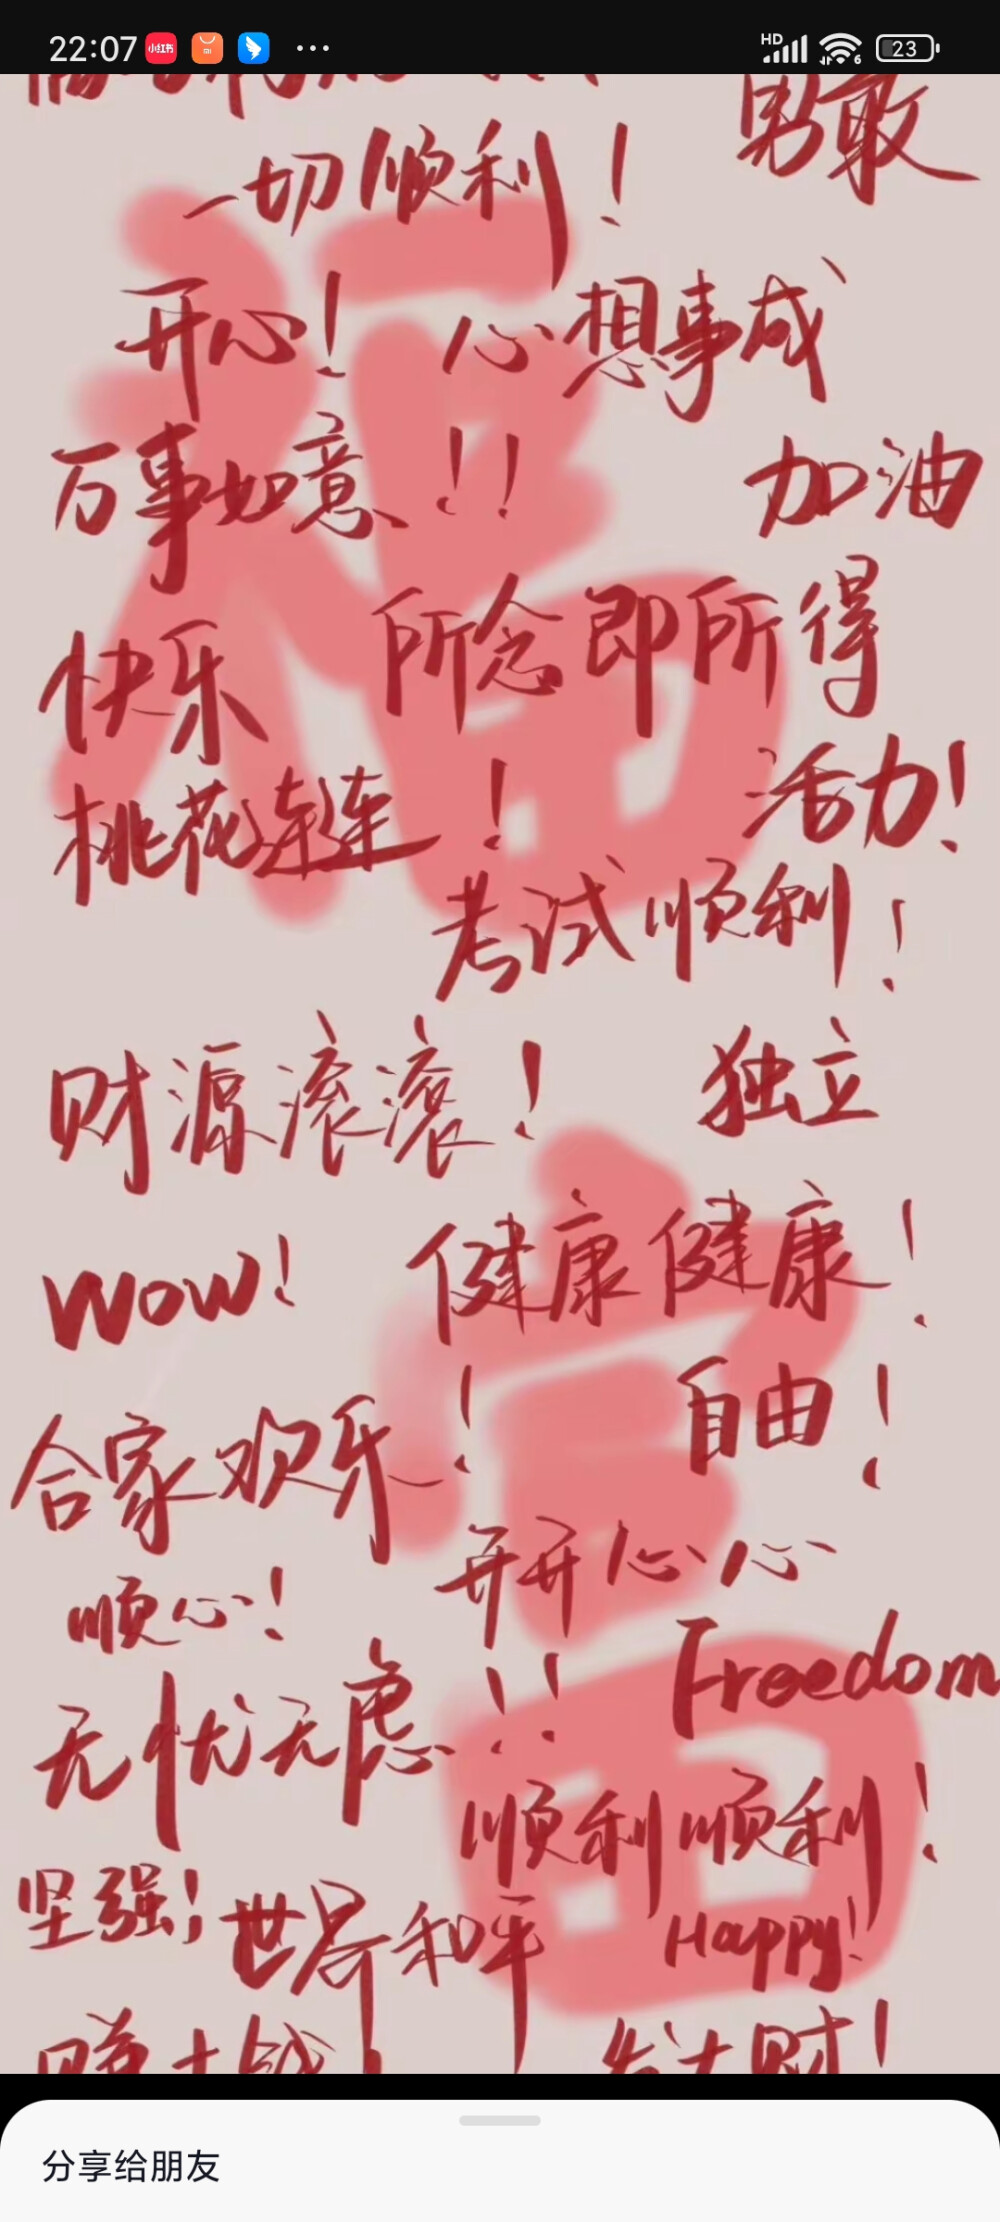 22:07 小红书 HD 6 23
一切顺利！ 勇敢
开心！ 心想事成
万事如意！！ 加油
快乐 所念即所得
桃花连连！ 活力！
考试顺利！
财源滚滚！ 独立
WOW! 健康健康！
合家欢乐！ 自由！
顺心！ 开开心心
无忧无虑！！ Freedom
顺利顺利！
坚强！ 世界和平 Happy!
赚大钱！ 发大财！
福富
分享给朋友